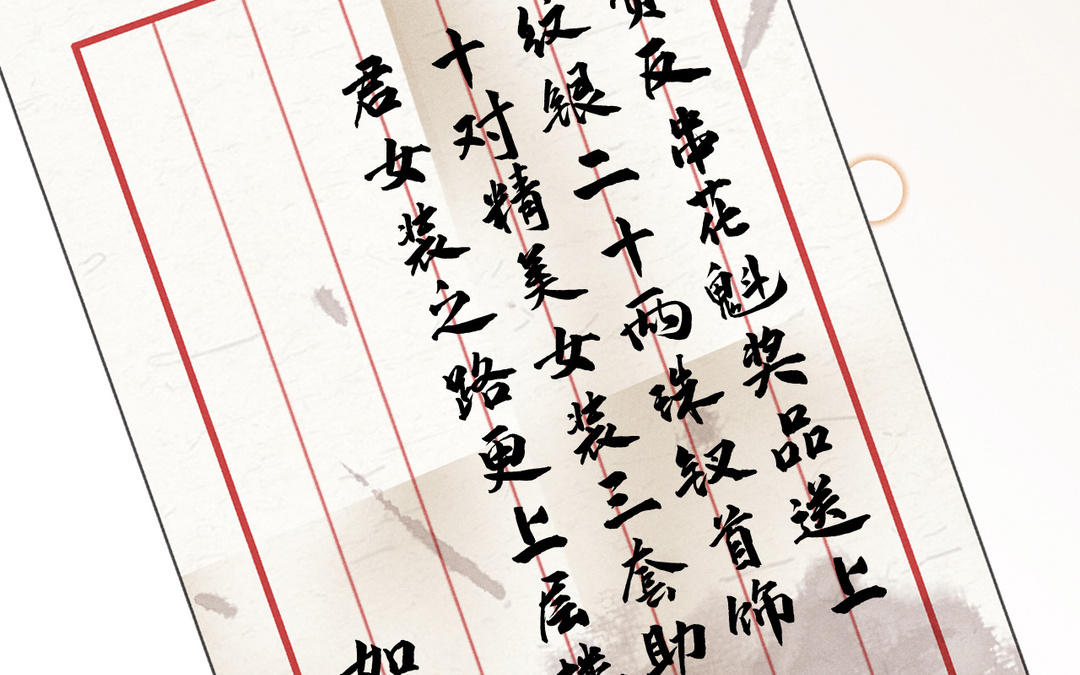 反串花魁奖品送上
纹银二十两珠钗首饰
十对精美女装三套助
君女装之路更上层楼
如